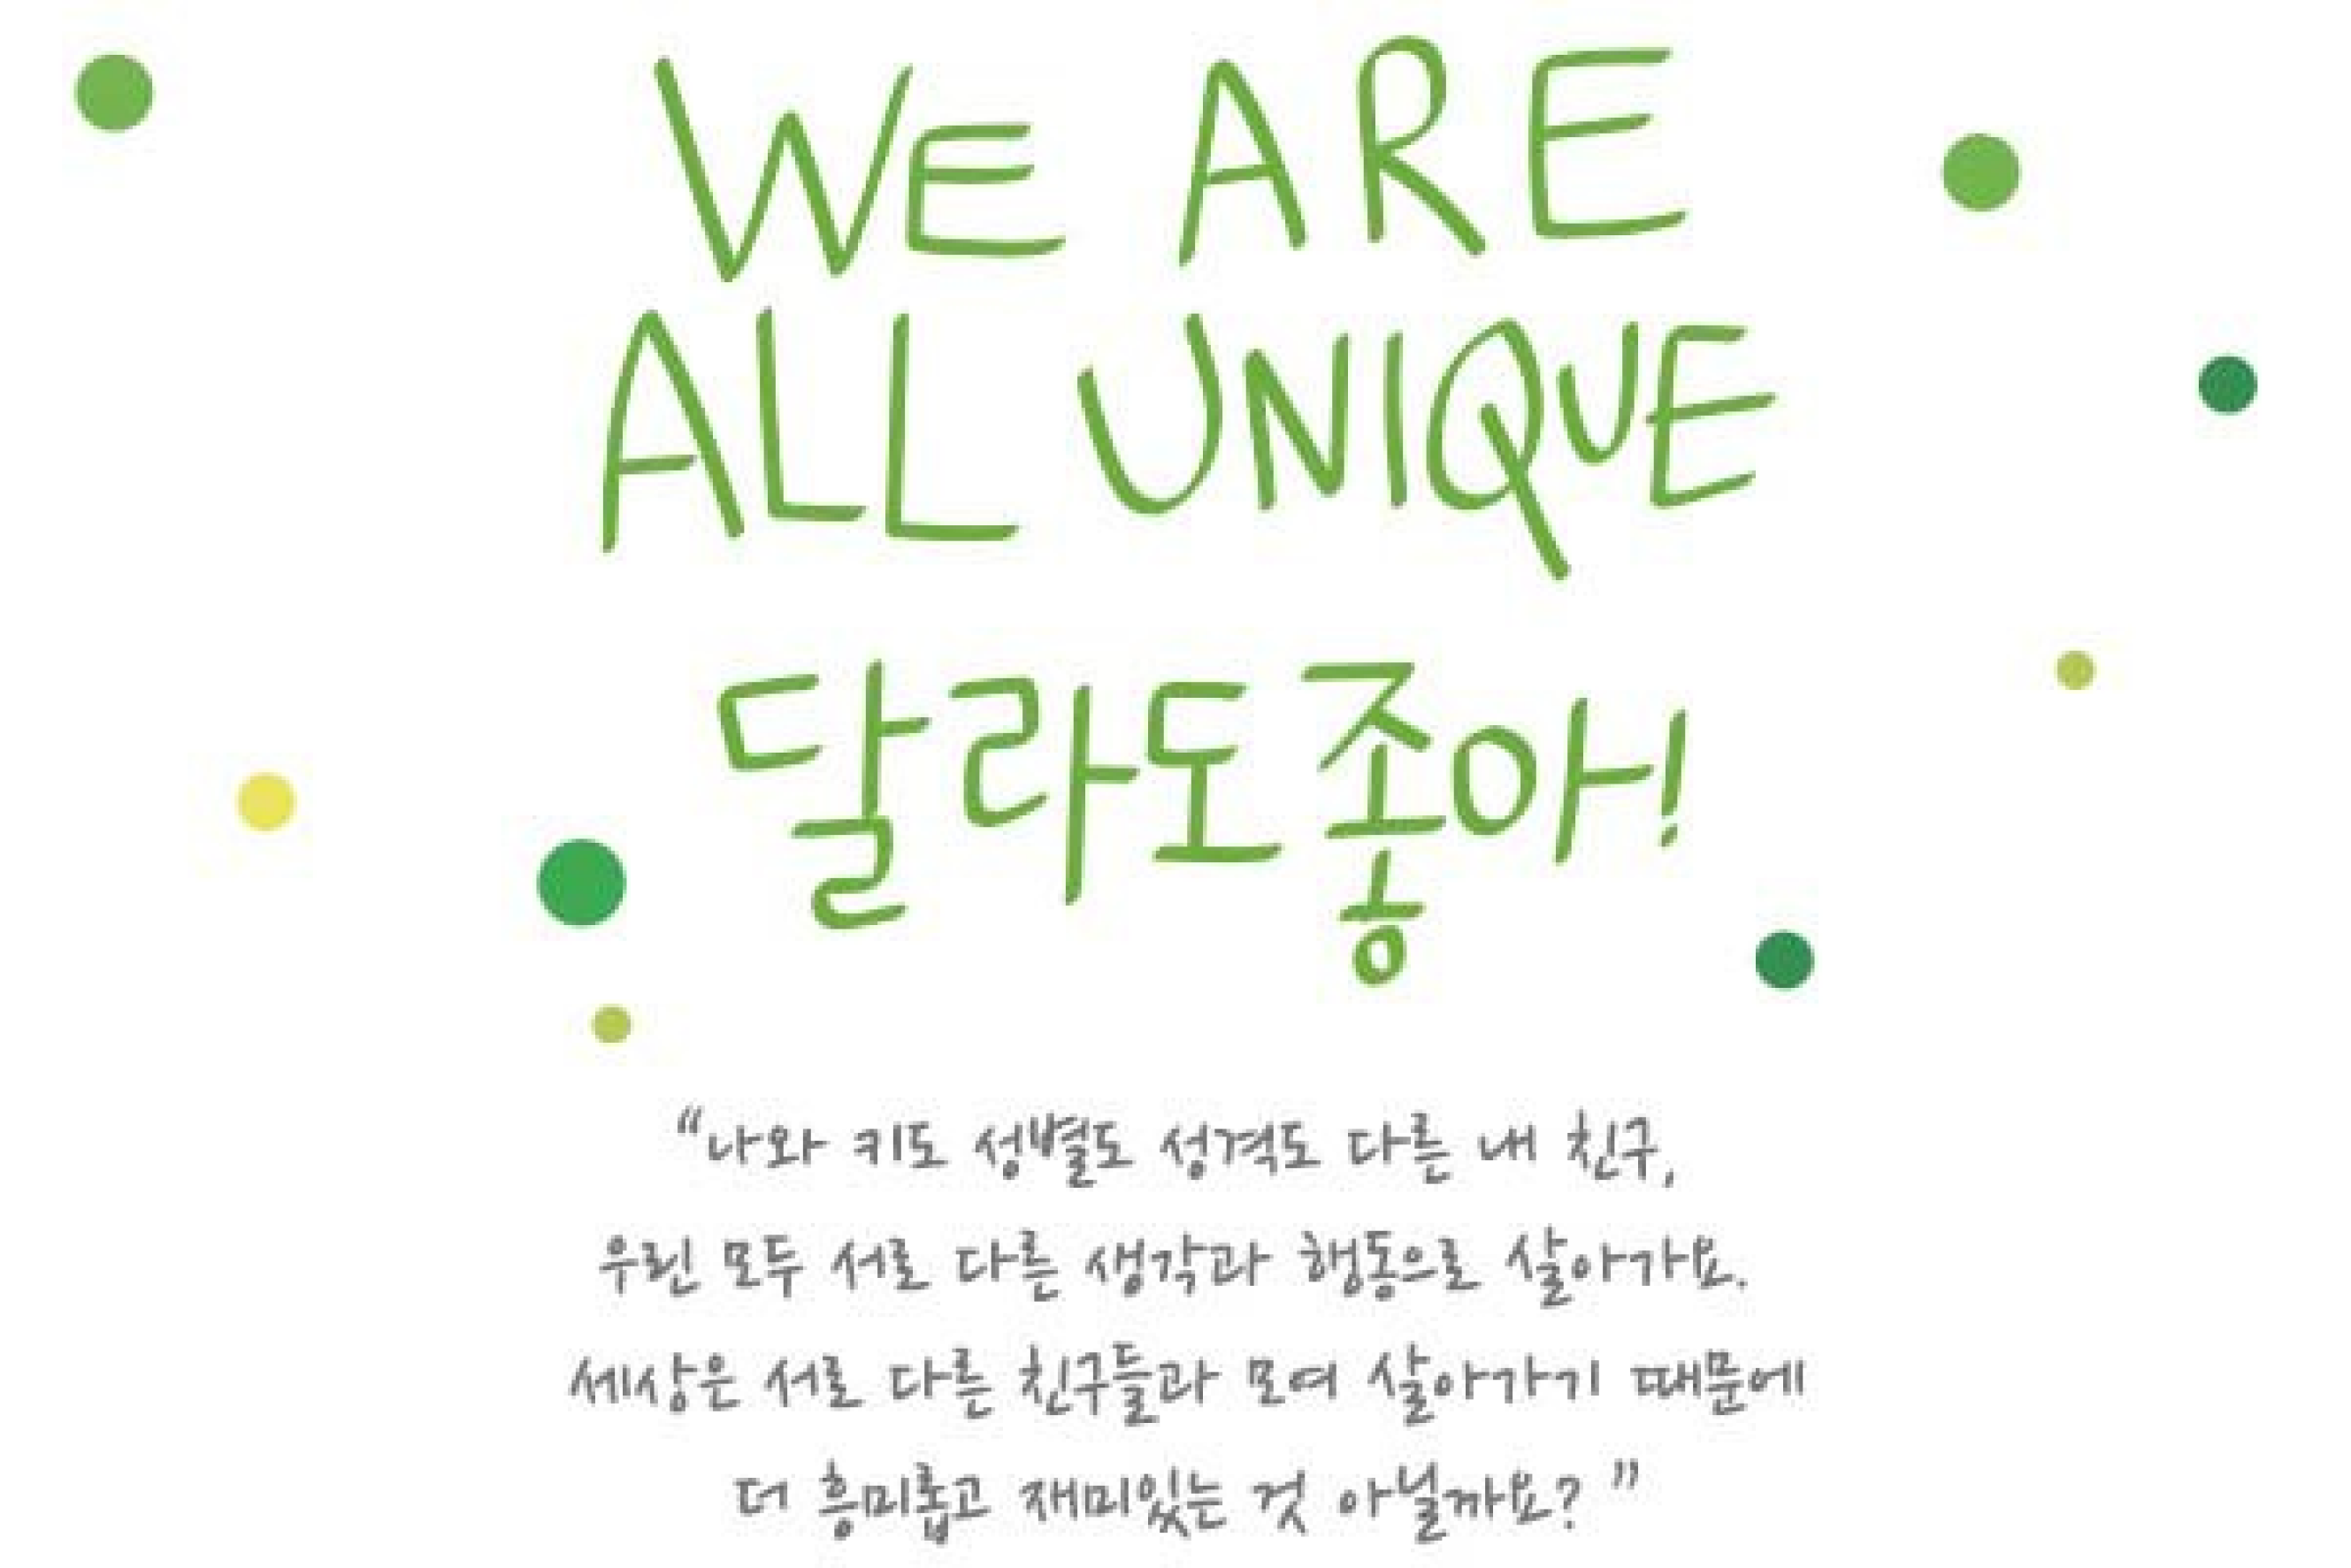 WE ARE
ALL UNIQUE
달라도좋아!
“나와 키도 성별도 성격도 다른 내 친구,
우린 모두 서로 다른 생각과 행동으로 살아가요.
세상은 서로 다른 친구들과 모여 살아가기 때문에
더 흥미롭고 재미있는 것 아닐까요?”